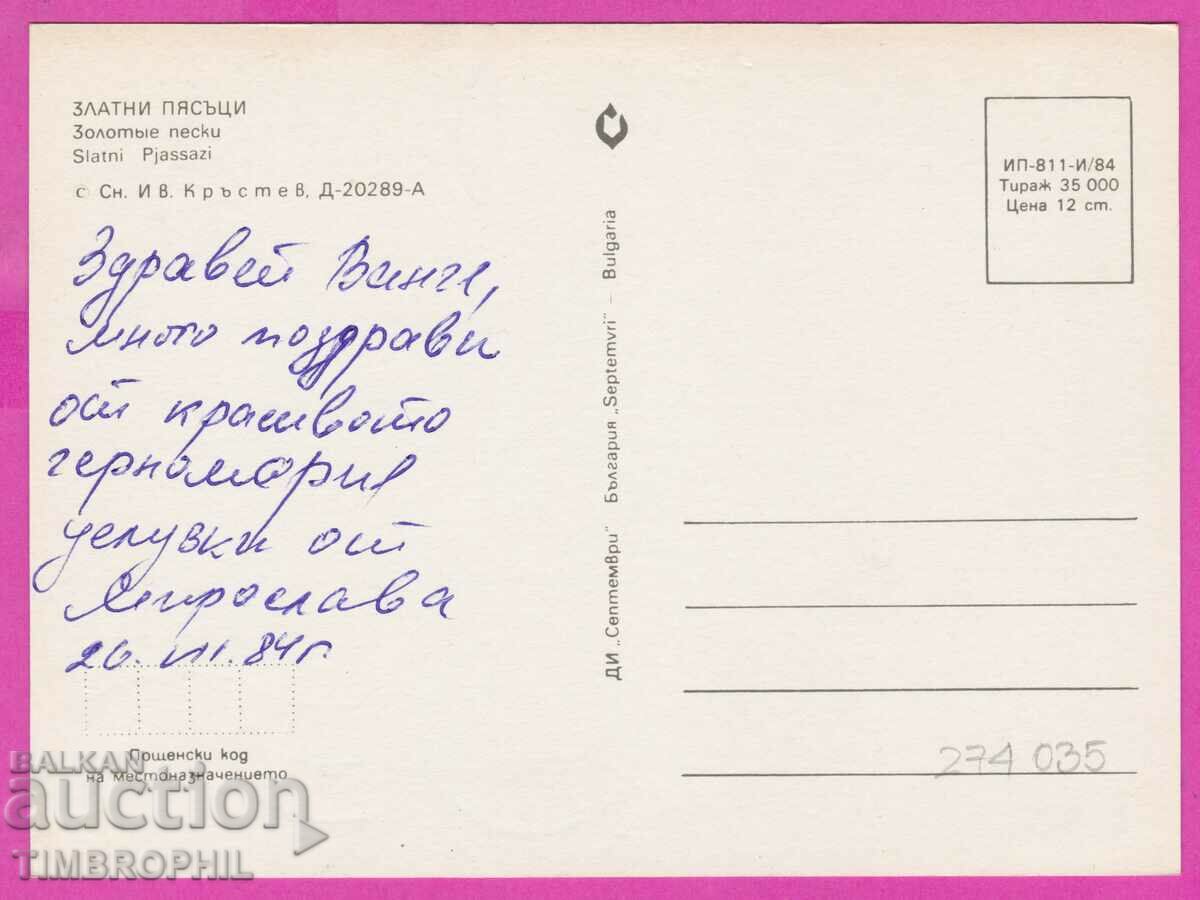 ЗЛАТНИ ПЯСЪЦИ
Золотые пески
Slatni Pjassazi
© Сн. Ив. Кръстев, Д-20289-А
Здравей Ванче,
много поздрави
от красивото
черноморие
целувки от
Мирослава
20. VIII. 84 г.
Пощенски код
на местоназначението
ДИ „Септември" България „Septemvri" – Bulgaria
ИП-811-И/84
Тираж 35 000
Цена 12 ст.
274 035
BALKAN
auction
TIMBROPHIL